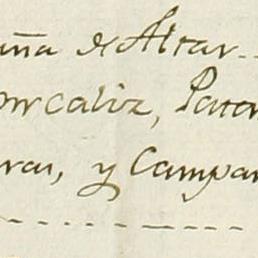 uña de Altar..
por caliz, Paten
ras, y Campan